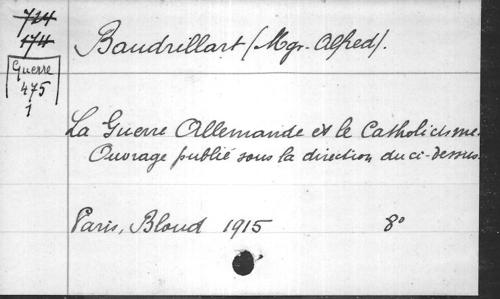 724
174
Guerre
475
1
Baudrillart (Mgr. Alfred).
La Guerre Allemande et le Catholicisme.
Ouvrage publié sous la direction du ci-dessus.
Paris, Bloud 1915 8°